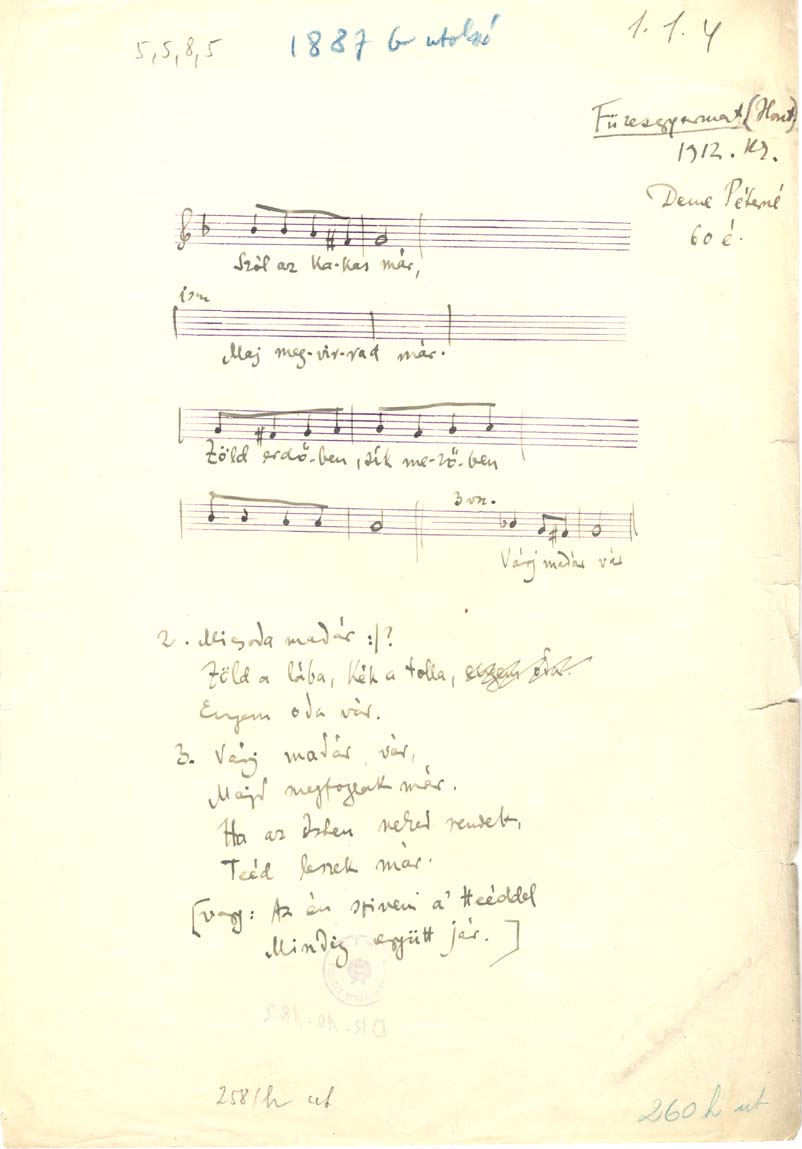 5,5,8,5
1887 b utolsó
1. 1. 4
Füzesgyarmat (Hont)
1912. Kz.
Deme Péterné
60 é.
Szól az ka-kas már,
ism
Maj meg-vir-rad már.
Zöld erdő-ben, sík me-ző-ben
3 vsz.
Várj madár vár
2. Micsoda madár :|?
Zöld a lába, kék a tolla, engem oda.
Engem oda vár.
3. Várj madár, vár,
Majd megfoglak már.
Ha az Isten neked rendelt,
Teéd leszek már.
[vagy: Az én szivem a' tieéddel
Mindig együtt jár.]
DR-10.182
258/h ut
260 h ut